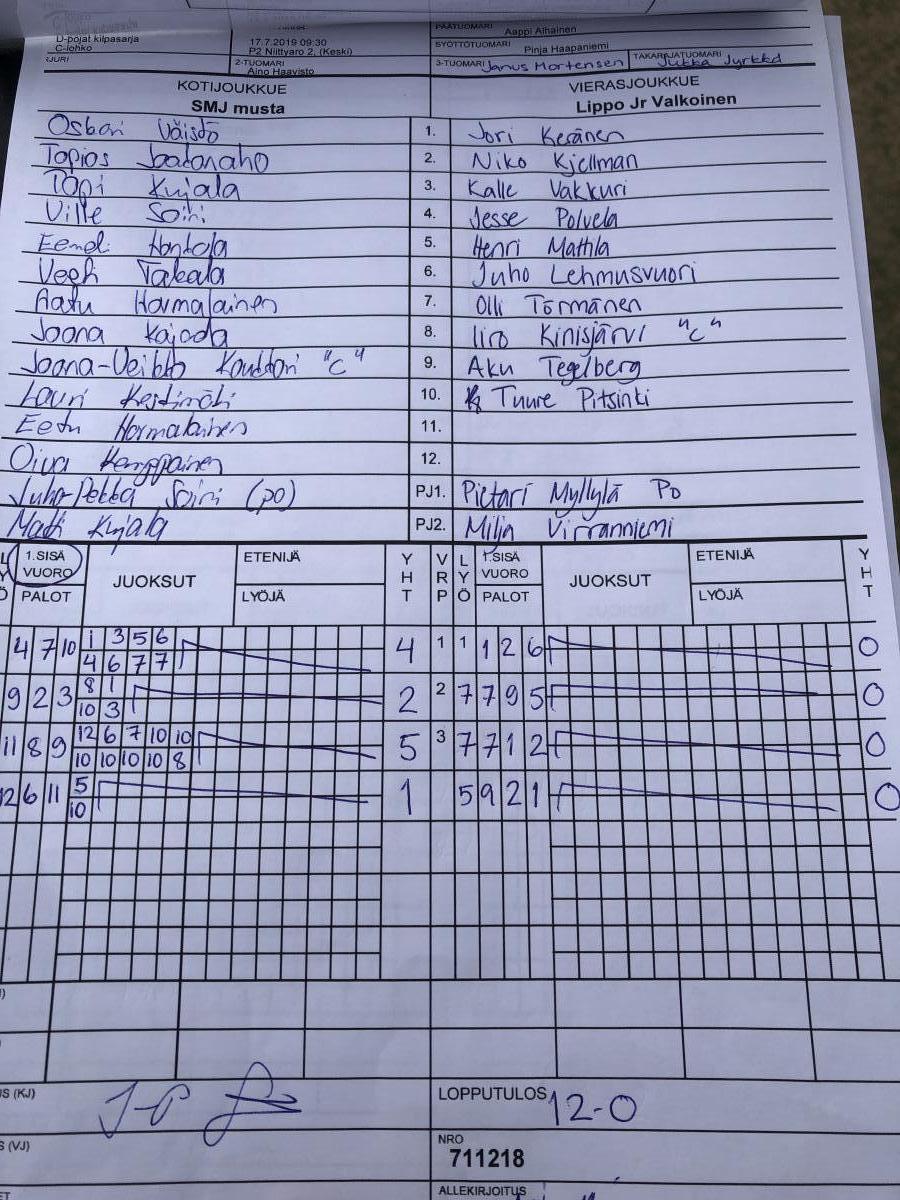 D-pojat kilpasarja
C-lohko
17.7.2019 09:30
P2 Niittyaro 2, (Keski)
PÄÄTUOMARI Aappi Alhainen
SYÖTTÖTUOMARI Pinja Haapaniemi
2-TUOMARI
Aino Haavisto
3-TUOMARI Janus Mortensen TAKARAJATUOMARI Jukka Jyrkkä
KOTIJOUKKUE VIERASJOUKKUE
SMJ musta Lippo Jr Valkoinen
Oskari Väistö 1. Jori Keränen
Topios Jaatanaho 2. Niko Kjellman
Topi Kujala 3. Kalle Vakkuri
Ville Soini 4. Jesse Polvela
Eemeli Hentola 5. Henri Mattila
Veeti Takala 6. Juho Lehmusvuori
Aatu Harmalainen 7. Olli Törmänen
Joona Kajoda 8. Iiro Kinisjärvi "C"
Joona-Veikko "C" 9. Aku Tegelberg
Lauri 10. Tuure Pitsinki
Eetu Harmalainen 11.
Oiva Kemppainen 12.
Juho-Pekka Soini (po) PJ1. Pietari Myllylä Po
Matti Kujala PJ2. Milja Virranniemi
1.SISÄ VUORO JUOKSUT ETENIJÄ YHT VRP LYÖ 1.SISÄ VUORO JUOKSUT ETENIJÄ YHT
PALOT LYÖJÄ PALOT LYÖJÄ
4 7 10 1 3 5 6 4 1 1 1 2 6 0
4 6 7 7
9 2 3 8 1 2 2 7 7 9 5 0
10 3
11 8 9 12 6 7 10 10 5 3 7 7 1 2 0
10 10 10 10 8
12 6 11 5 1 5 9 2 1 0
10
(KJ) J-P LOPPUTULOS 12-0
(VJ) NRO
711218
ALLEKIRJOITUS